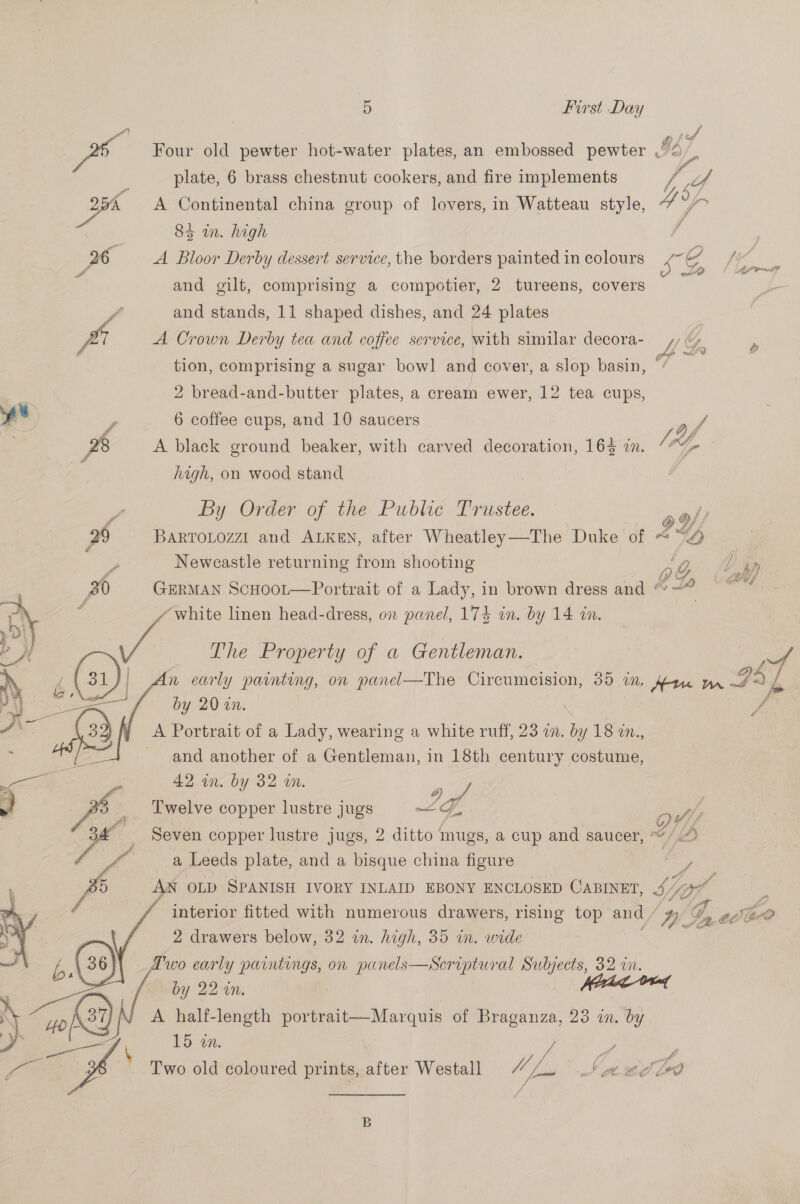 5 First Day
25 Four old pewter hot-water plates, an embossed pewter
plate, 6 brass chestnut cookers, and fire implements
25A A Continental china group of lovers, in Watteau style,
8½ in. high
26 A Bloor Derby dessert service, the borders painted in colours
and gilt, comprising a compotier, 2 tureens, covers
and stands, 11 shaped dishes, and 24 plates
27 A Crown Derby tea and coffee service, with similar decora-
tion, comprising a sugar bowl and cover, a slop basin,
2 bread-and-butter plates, a cream ewer, 12 tea cups,
6 coffee cups, and 10 saucers
28 A black ground beaker, with carved decoration, 16½ in.
high, on wood stand
By Order of the Public Trustee.
29 BARTOLOZZI and ALKEN, after Wheatley—The Duke of
Newcastle returning from shooting
30 GERMAN SCHOOL—Portrait of a Lady, in brown dress and
white linen head-dress, on panel, 17½ in. by 14 in.
The Property of a Gentleman.
31 An early painting, on panel—The Circumcision, 35 in.
by 20 in.
32 A Portrait of a Lady, wearing a white ruff, 23 in. by 18 in.,
and another of a Gentleman, in 18th century costume,
42 in. by 32 in.
33 Twelve copper lustre jugs
34 Seven copper lustre jugs, 2 ditto mugs, a cup and saucer,
a Leeds plate, and a bisque china figure
35 AN OLD SPANISH IVORY INLAID EBONY ENCLOSED CABINET,
interior fitted with numerous drawers, rising top and
2 drawers below, 32 in. high, 35 in. wide
36 Two early paintings, on panels—Scriptural Subjects, 32 in.
by 22 in.
37 A half-length portrait—Marquis of Braganza, 23 in. by
15 in.
38 Two old coloured prints, after Westall
B